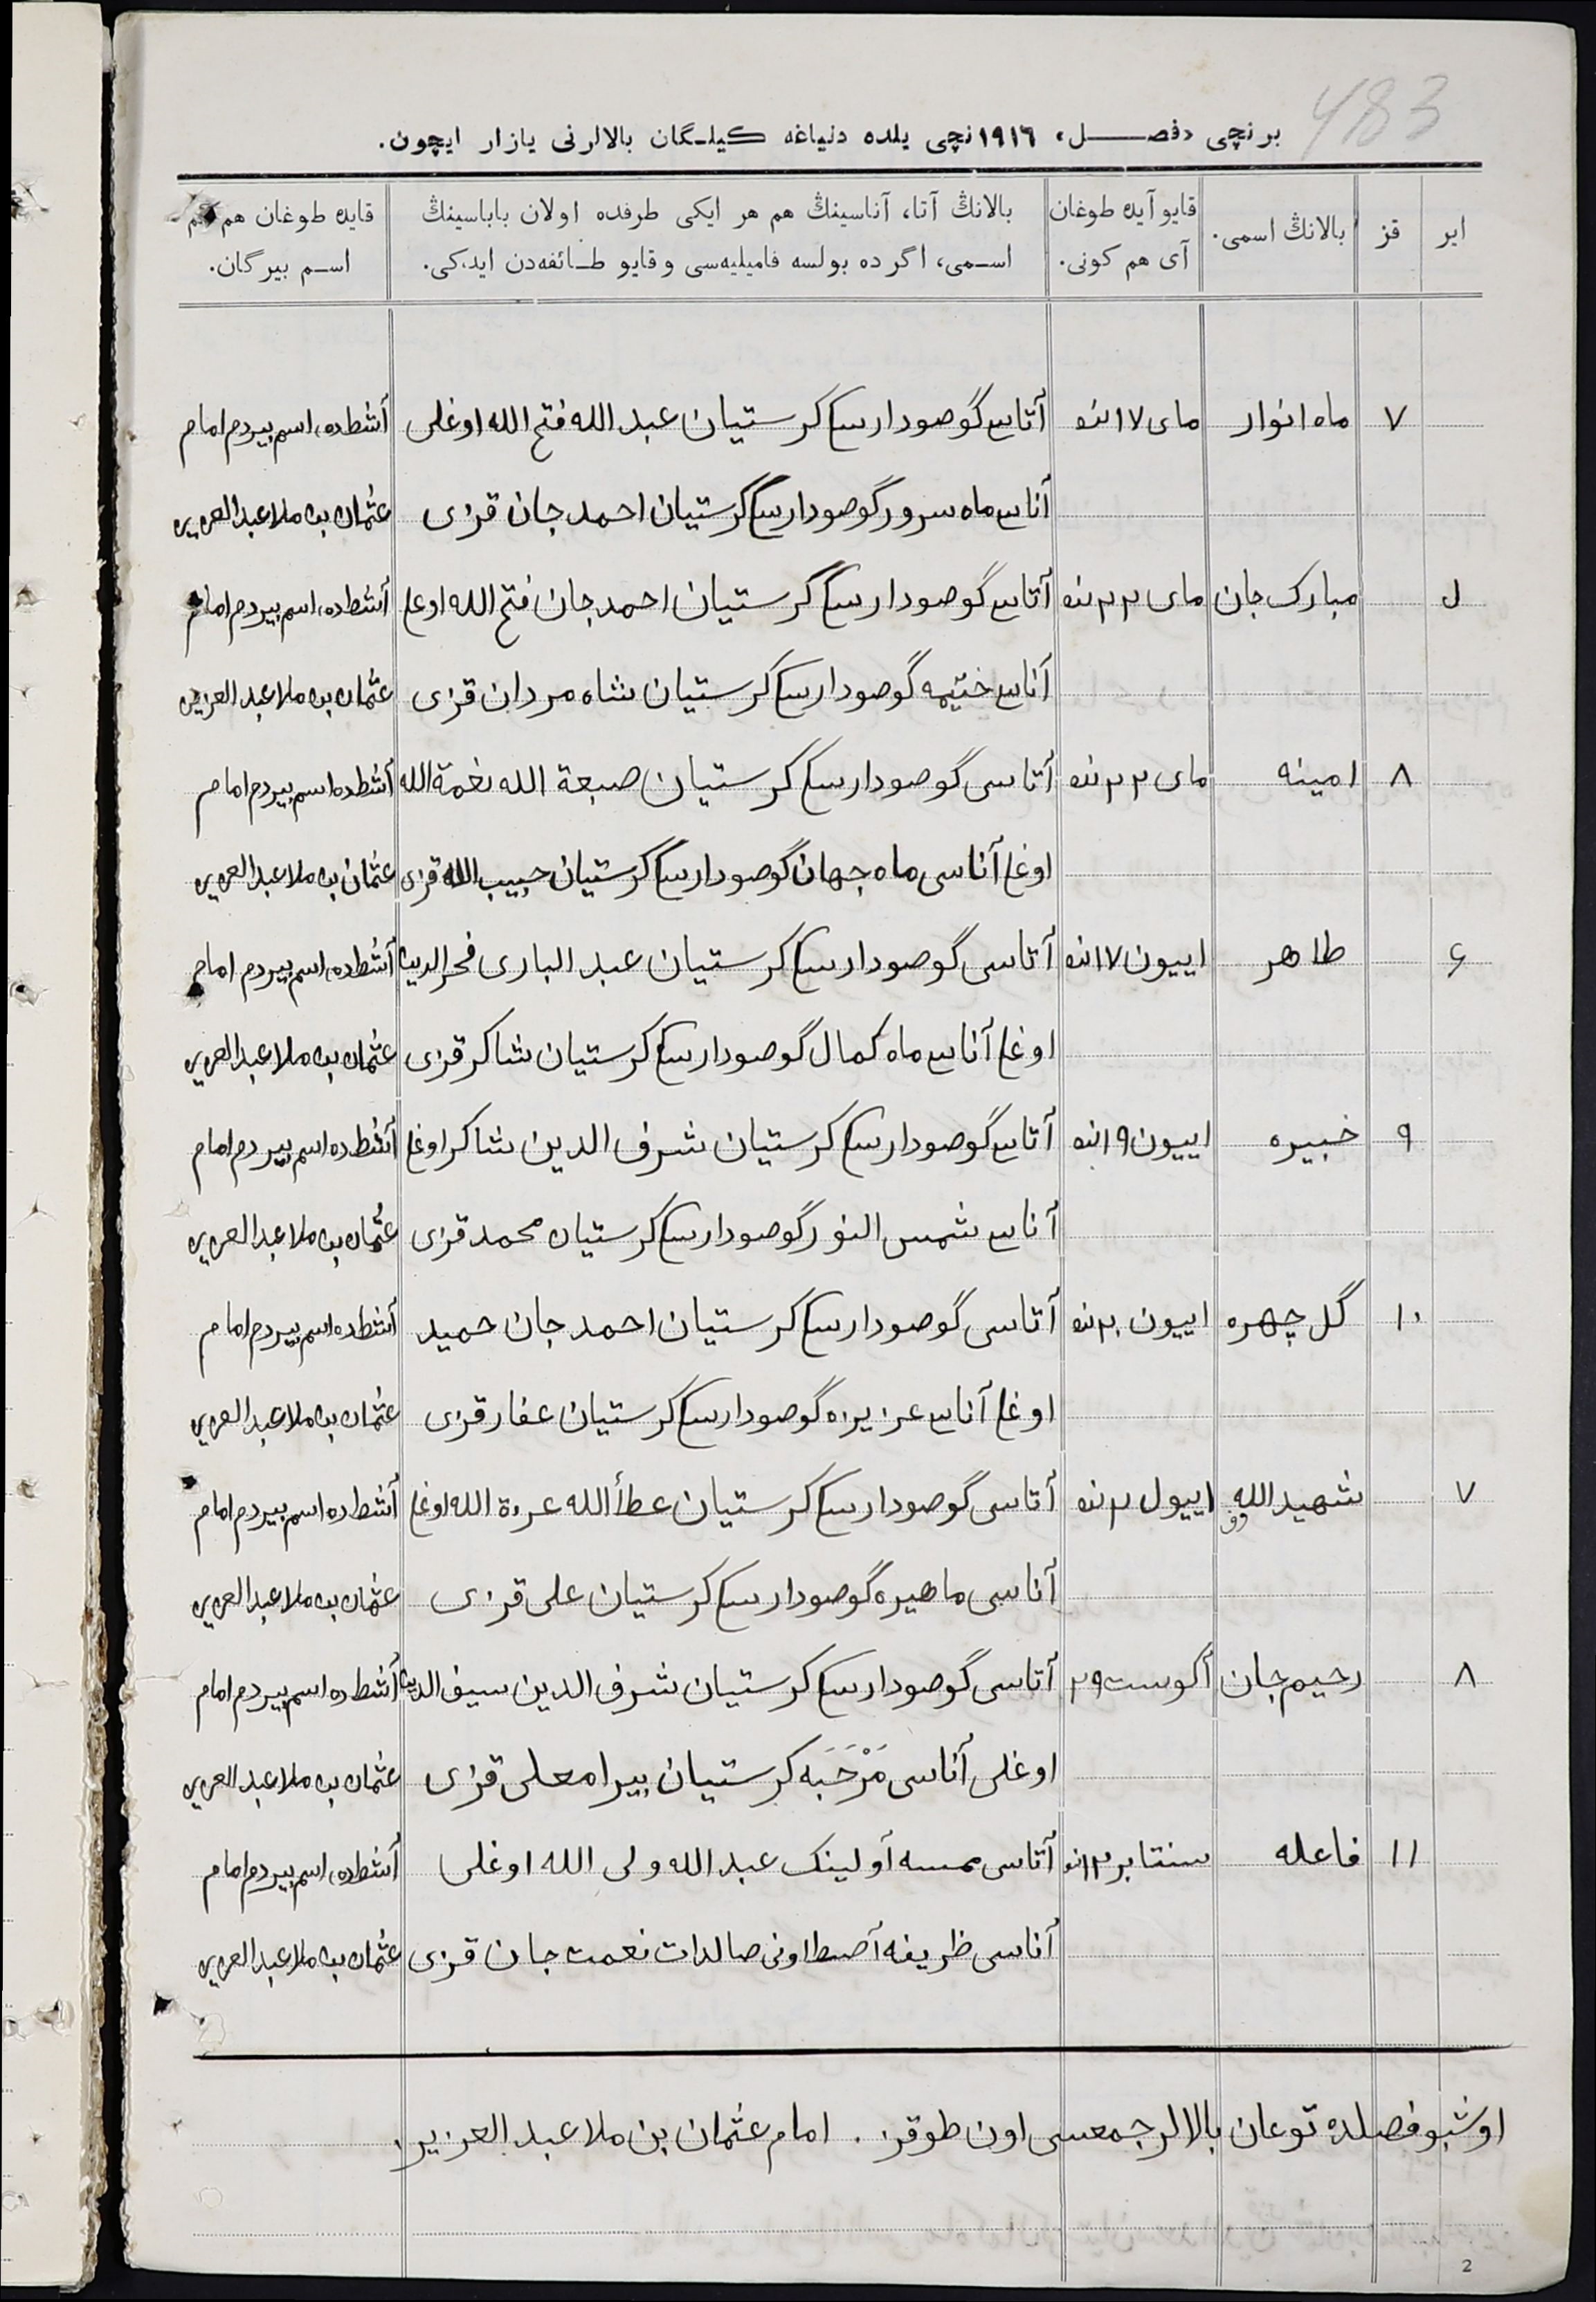 483
برنچی «فصل» ١٩١٦نچی یلده دنیاغه کیلـگان بالالرنی یازار ایچون.
ایر
قز
بالانڭ اسمی.
قایو آیده طوغان
آی هم کونی.
بالانڭ آتا، آناسینڭ هم هر ایکی طرفده اولان باباسینڭ
اسـمی، اگر ده بولسه فامیلیه‌سی و قایو طـائفه‌دن ایدکی.
قایده طوغان هم کم
اسـم بیرگان.
٧ ماه انوار مای ١٧نده آتاسی گوصودارسکی کرستیان عبد الله فتح الله اوغلی آشطده، اسم بیردم امام
آناسی ماه سرور گوصودارسکی کرستیان احمد جان قزی عثمان بن ملا عبد العزیز
مبارک جان مای ٢٢نده آتاسی گوصودارسکی کرستیان احمد جان فتح الله اوغلی آشطده، اسم بیردم امام
آناسی ختیمه گوصودارسکی کرستیان شاه مردان قزی عثمان بن ملا عبد العزیز
٨ امینه مای ٢٢نده آتاسی گوصودارسکی کرستیان صبغة الله نعمة الله آشطده، اسم بیردم امام
اوغلی آناسی ماه جهان گوصودارسکی کرستیان حبیب الله قزی عثمان بن ملا عبد العزیز
۶ طاهر اییون ١٧نده آتاسی گوصودارسکی کرستیان عبد الباری فخر الدین آشطده، اسم بیردم امام
اوغلی آناسی ماه کمال گوصودارسکی کرستیان شاکر قزی عثمان بن ملا عبد العزیز
٩ خبیره اییون ١٩نده آتاسی گوصودارسکی کرستیان شرف الدین شاکر اوغلی آشطده اسم بیردم امام
آناسی شمس النور گوصودارسکی کرستیان محمد قزی عثمان بن ملا عبد العزیز
١٠ گل چهره اییون ٢٠نده آتاسی گوصودارسکی کرستیان احمد جان حمید آشطده اسم بیردم امام
اوغلی آناسی عزیزه گوصودارسکی کرستیان غفار قزی عثمان بن ملا عبد العزیز
٧ شهید الله اییول ٢نده آتاسی گوصودارسکی کرستیان عطأ الله الله اوغلی آشطده اسم بیردم امام
آناسی ماهیره گوصودارسکی کرستیان علی قزی عثمان بن ملا عبد العزیز
٨ رحیم جان آگوست ٢٩ آتاسی گوصودارسکی کرستیان شرف الدین سیف الدین آشطده اسم بیردم امام
اوغلی آناسی مَرْحَبَه کرستیان بیرامعلی قزی عثمان بن ملا عبد العزیز
١١ فاعله سنتابر ١٢نده آتاسی عبد الله ولی الله اوغلی آشطده، اسم بیردم امام
آناسی ظریفه صالدات نعمت جان قزی عثمان بن ملا عبد العزیز
اوشبو فصلده توغان بالالر جمعسی اون طوقز. امام عثمان بن ملا عبد العزیز.
2